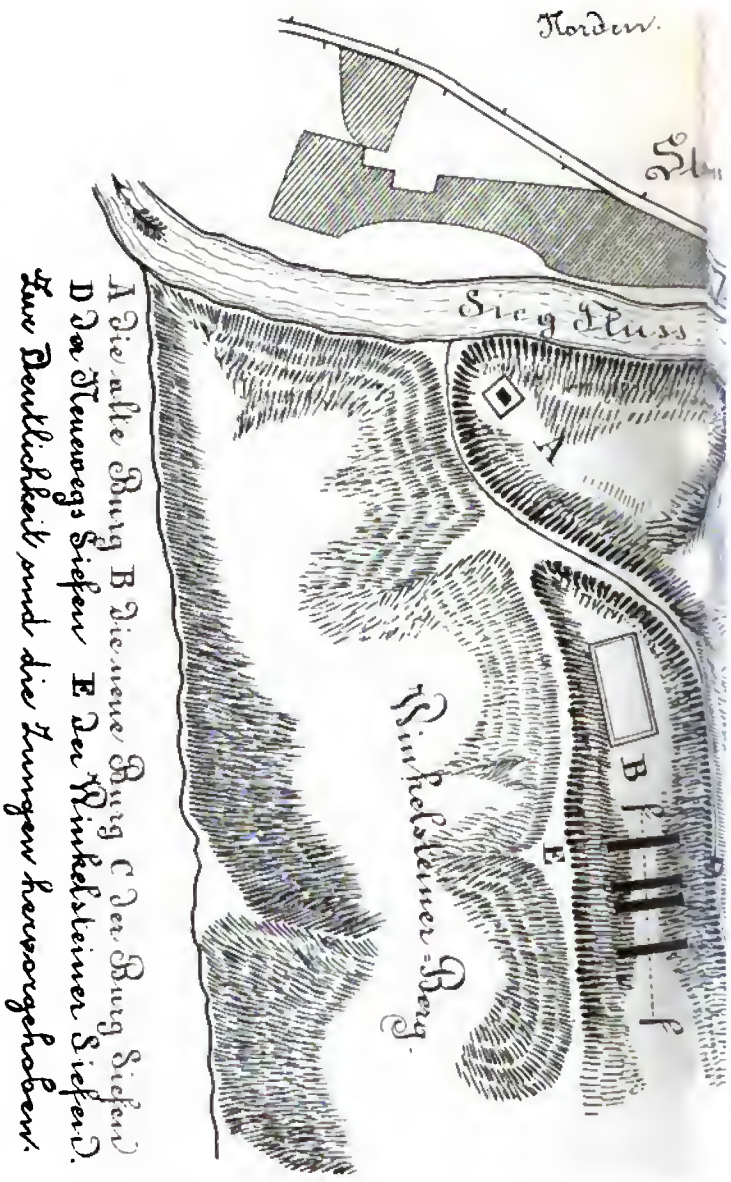 Norden.
Sieg Fluss
A
B
f
f
E
Winkelsteiner=Berg.
A die alte Burg B die neue Burg C der Burg Siefen
D der Neuewegs Siefen E der Winkelsteiner Siefen.
Zur Deutlichkeit sind die Zungen hervorgehoben.